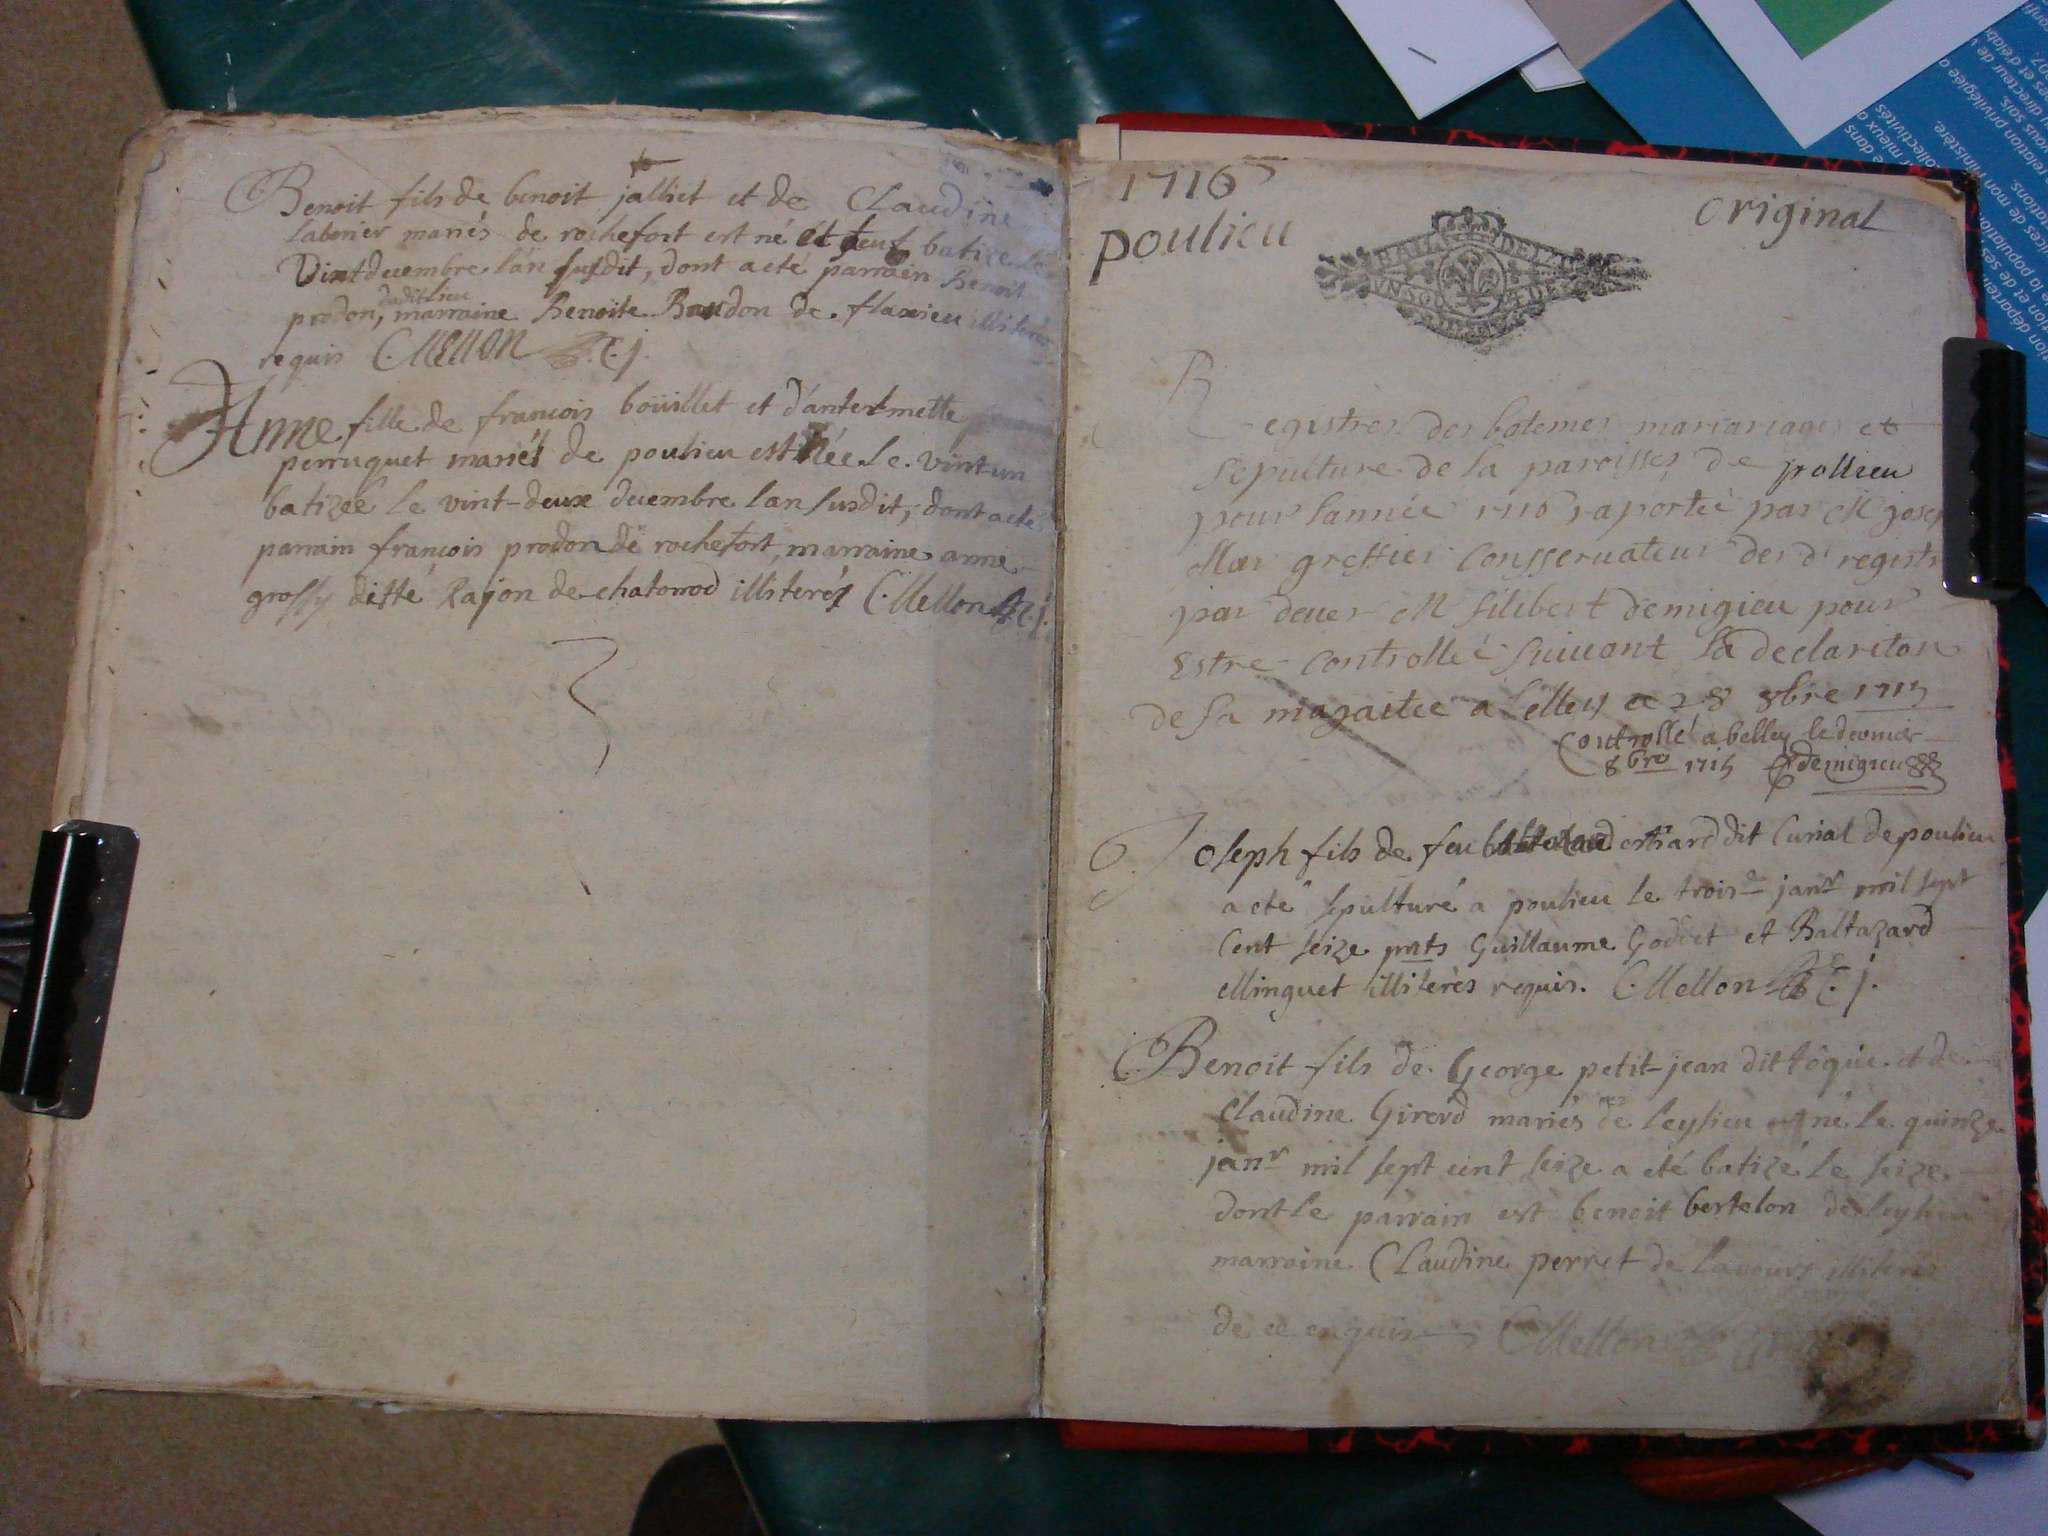 Benoit fils de benoit jalliet et de Claudine
labonier mariés de rochefort est né et feut batizé le
Vint decembre lan susdit, dont acte parrain Benoit
prodon, dudit lieu marraine Benoite Baudon de flaxieu illiterés
requis C. Mellon
Anne fille de françois boüillet et d'antelmette
perruquet mariés de poulieu est née le vint-un
batizée le vint-deux decembre lan susdit, dont acte
parrain françois prodon de rochefort, marraine anne
grossy ditte Rajon de chatonod illiterés C. Mellon
1716
poulieu
original
GNAL
Registres des batemes mariariages et
sepulture de la paroisses de pollieu
pour lannée 1716 raportée par M josep
greffier Consseruateur des d registr
par deuer M filibert demigieu pour
Estre Controlleé suiuant la declariton
de sa magaitee a belley ce 28 8bre 1715
Controllé a belley le dernier
8bre 1715 demigieu
Joseph fils de feu dit Curial de poulieu
a eté sepulturé a poulieu le trois janr mil sept
Cent seize pnts Guillaume Goddet et Baltazard
Minguet illiterès requis. C. Mellon
Benoit fils de George petit-jean dit tòquè et de
Claudine Girerd mariés de leyssieu est né le quinze
janr mil sept cent seize a eté batizé le seize
dont le parrain est benoit bertelon de leyssieu
marraine Claudine perret de lavours illiteres
de ce enquis C. Mellon